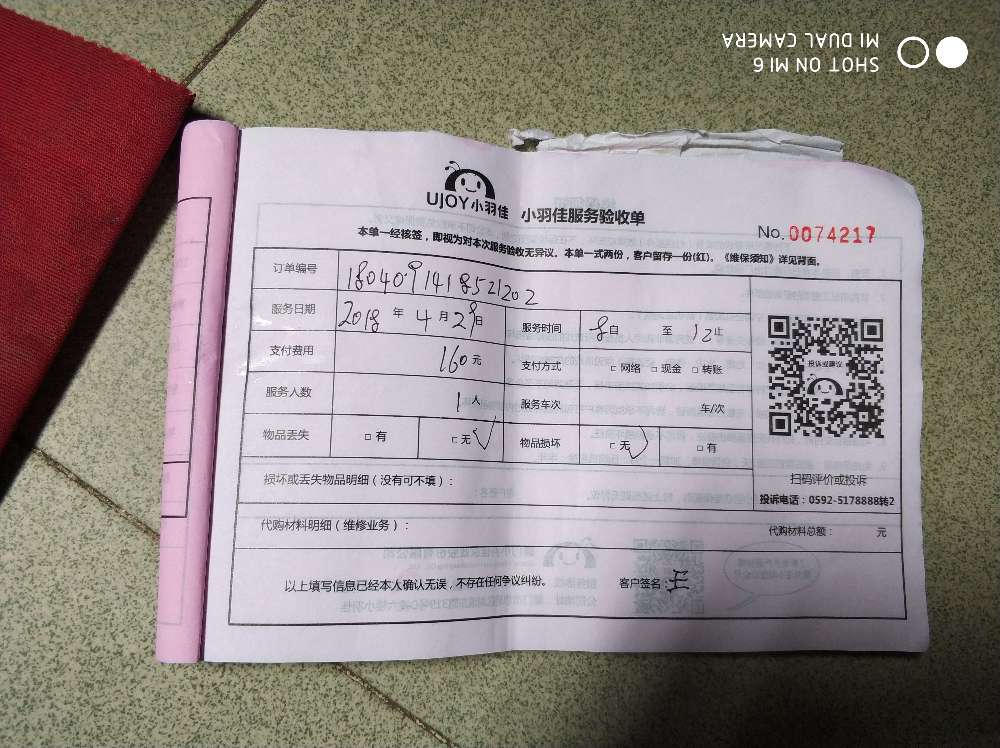 SHOT ON MI 6
MI DUAL CAMERA
UJOY小羽佳 小羽佳服务验收单
No. 0074217
本单一经核签，即视为对本次服务验收无异议。本单一式两份，客户留存一份(红)。《维保须知》详见背面。
订单编号 1804091418521202
服务日期 2018 年 4 月 29 日 服务时间 8 自 至 12 止
支付费用 160 元 支付方式 □ 网络 □ 现金 □ 转账
服务人数 1 人 服务车次 车/次
物品丢失 □ 有 □ 无 √ 物品损坏 □ 无 √ □ 有
投诉或建议
扫码评价或投诉
损坏或丢失物品明细（没有可不填）：
投诉电话：0592-5178888转2
代购材料明细（维修业务）： 代购材料总额： 元
以上填写信息已经本人确认无误，不存在任何争议纠纷。 客户签名：王